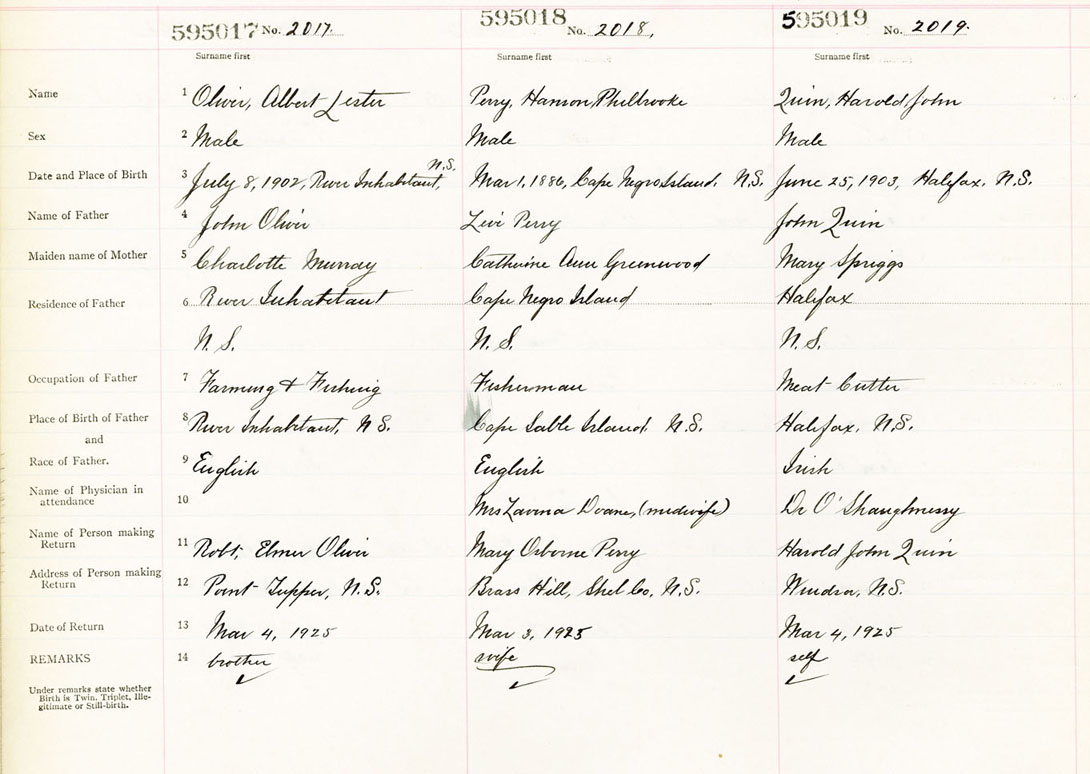 595017 No. 2017. 595018 No. 2018, 595019 No. 2019.
Surname first Surname first Surname first
Name 1 Oliver, Albert Lester Perry, Hanson Philbrooke Quin, Harold John
Sex 2 Male Male Male
N.S.
Date and Place of Birth 3 July 8, 1902, River Inhabitant, Mar 1, 1886, Cape Negro Island, N.S. June 25, 1903, Halifax, N.S.
Name of Father 4 John Oliver Levi Perry John Quin
Maiden name of Mother 5 Charlotte Murray Catherine Ann Greenwood Mary Spriggs
Residence of Father 6 River Inhabitant Cape Negro Island Halifax
N.S. N.S. N.S.
Occupation of Father 7 Farming & Fishing Fisherman Meat Cutter
Place of Birth of Father 8 River Inhabitant, N.S. Cape Sable Island, N.S. Halifax, N.S.
and
Race of Father. 9 English English Irish
Name of Physician in
attendance 10 Mrs Lavina Doane, (midwife) Dr O'Shaughnessy
Name of Person making
Return 11 Robt. Elmer Oliver Mary Osborne Perry Harold John Quin
Address of Person making
Return 12 Point Tupper, N.S. Brass Hill, Shel Co, N.S. Windsor, N.S.
Date of Return 13 Mar 4, 1925 Mar 3, 1925 Mar 4, 1925
REMARKS 14 brother wife self
Under remarks state whether
Birth is Twin, Triplet, Ille-
gitimate or Still-birth.